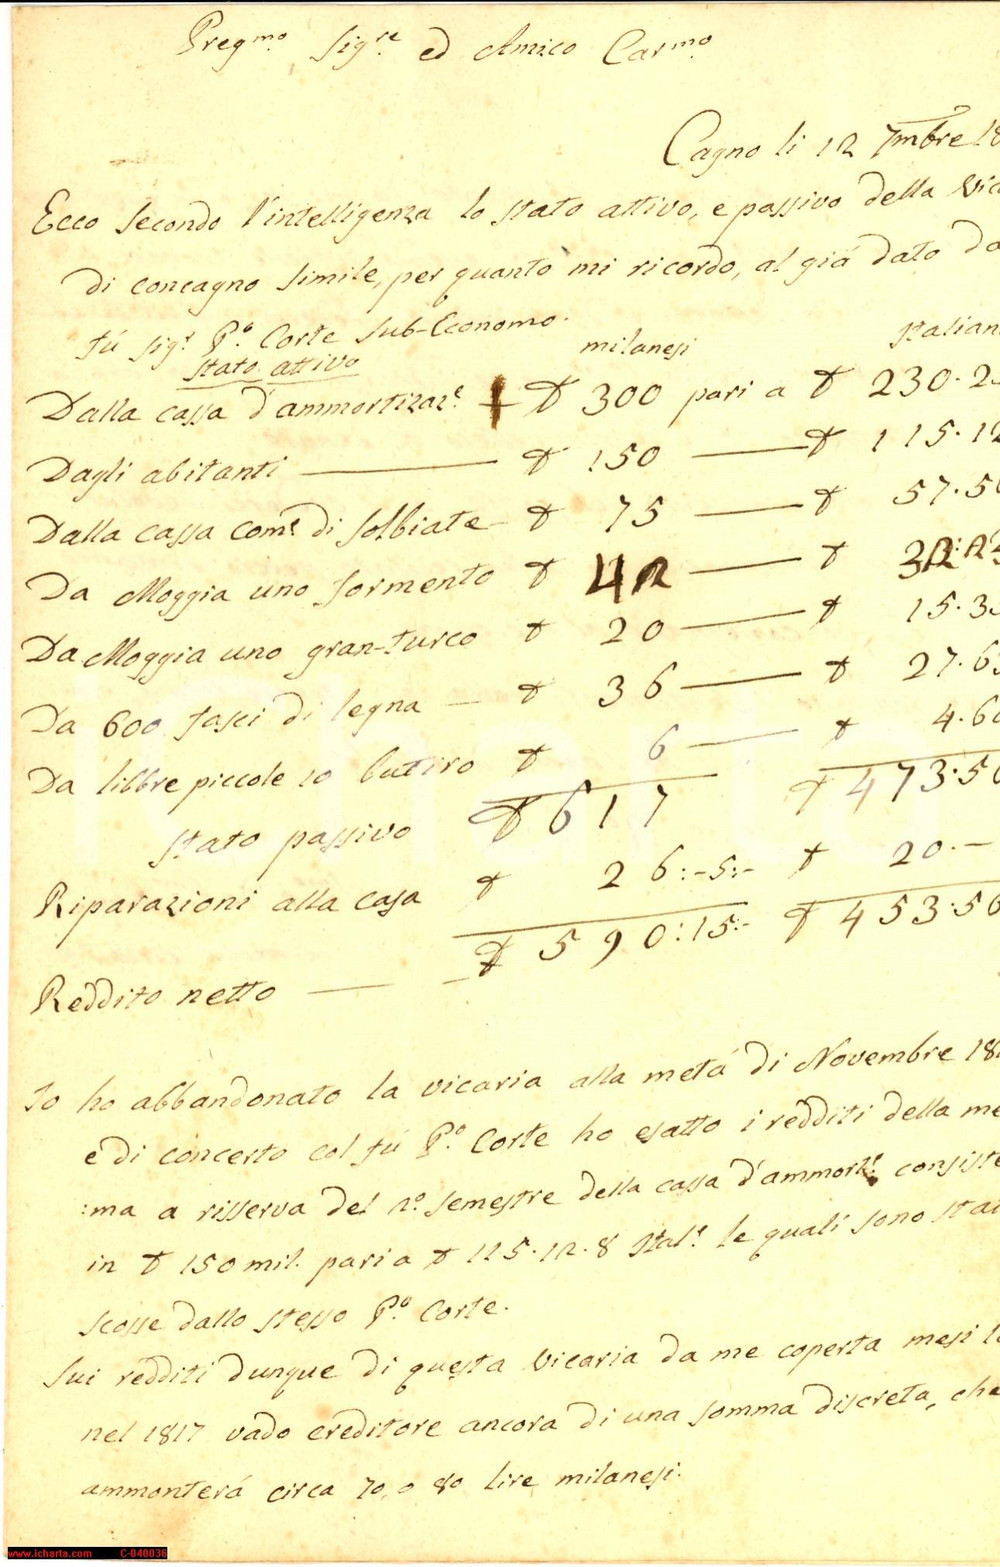 Pregmo. Sigre. ed Amico Carmo.
Cagno li 12 7mbre 18
Ecco secondo l'intelligenza lo stato attivo, e passivo della Vica
di concagno simile, per quanto mi ricordo, al giá dato da
fú Sigr. Po. Corte Sub-Economo.
Stato attivo milanesi Italian
Dalla cassa d'ammortizaze. ₶ 300 pari a ₶ 230.2
Dagli abitanti — ₶ 150 — ₶ 115.12
Dalla cassa come. di Solbiate — ₶ 75 — ₶ 57.56
Da Moggia uno formento ₶ 42 — ₶ 32:2
Da Moggia uno gran-turco ₶ 20 — ₶ 15.3
Da 600 fasci di legna — ₶ 36 — ₶ 27.6
Da libbre piccole 10 butiro ₶ 6 — ₶ 4.60
₶ 617 ₶ 473.50
Stato passivo
Riparazioni alla casa ₶ 26:-5:- ₶ 20.—
₶ 590:15:- ₶ 453.50
Reddito netto —
Io ho abbandonato la vicaria alla metá di Novembre 18
e di concerto col fú Po. Corte ho esatto i redditi della me
:ma a risserva del 2o. semestre della cassa d'ammorte. consiste
in ₶ 150 mil. pari a ₶ 115.12.8 Itale. le quali sono sta
scosse dallo stesso Po. Corte.
Sui redditi dunque di questa Vicaria da me coperta mesi
nel 1817 vado creditore ancora di una somma discreta, che
ammonterá circa 70, o 80 lire milanesi.
www.icharta.com C-040036